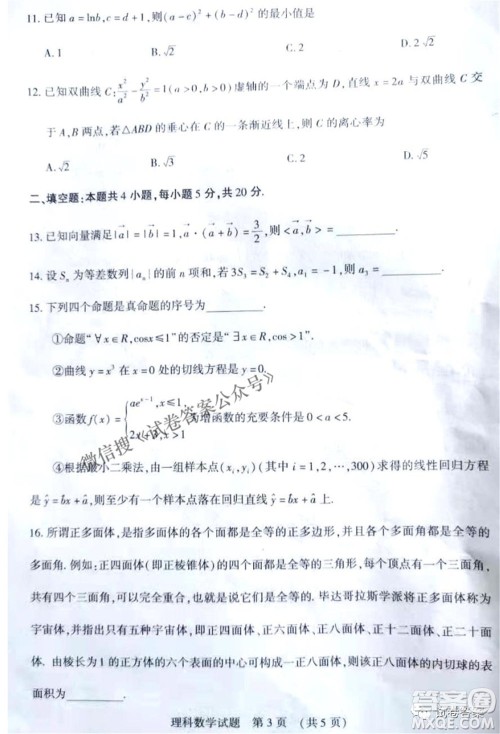 11. 已知 a = lnb, c = d + 1, 则(a - c)² + (b - d)² 的最小值是
A. 1 B. √2 C. 2 D. 2√2
12. 已知双曲线 C: x²/a² - y²/b² = 1(a > 0, b > 0) 虚轴的一个端点为 D, 直线 x = 2a 与双曲线 C 交
于 A, B 两点, 若△ABD 的垂心在 C 的一条渐近线上, 则 C 的离心率为
A. √2 B. √3 C. 2 D. √5
二、填空题: 本题共 4 小题, 每小题 5 分, 共 20 分.
13. 已知向量满足|a⃗| = |b⃗| = 1, a⃗ · (a⃗ + b⃗) = 3/2, 则 <a⃗, b⃗> = ________.
14. 设 Sₙ 为等差数列{aₙ}的前 n 项和, 若 3S₃ = S₂ + S₄, a₁ = -1, 则 a₃ = ________.
15. 下列四个命题是真命题的序号为________.
①命题“∀x∈R, cosx≤1”的否定是“∃x∈R, cosx > 1”.
②曲线 y = x³ 在 x = 0 处的切线方程是 y = 0.
③函数 f(x) = { aeˣ⁻¹, x≤1,
x > 1 为增函数的充要条件是 0 < a < 5.
④根据最小二乘法, 由一组样本点(xᵢ, yᵢ)(其中 i = 1, 2, …, 300)求得的线性回归方
程是 ŷ = b̂x + â, 则至少有一个样本点落在回归直线 ŷ = b̂x + â 上.
16. 所谓正多面体, 是指多面体的各个面都是全等的正多边形, 并且各个多面角都是全等的
多面角. 例如: 正四面体(即正棱锥体)的四个面都是全等的三角形, 每个顶点有一个三
面角, 共有四个三面角, 可以完全重合, 也就是说它们是全等的. 毕达哥拉斯学派将正多面体称为
宇宙体, 一共只有五种宇宙体, 即正四面体、正六面体、正八面体、正十二面体、正二十面
体. 由棱长为 1 的正方体的六个表面的中心可构成一正八面体, 则该正八面体的内切球的表
面积为________.
理科数学试题 第 3 页 (共 5 页)
微信搜《试卷答案公众号》
答案圈
MXQE.COM